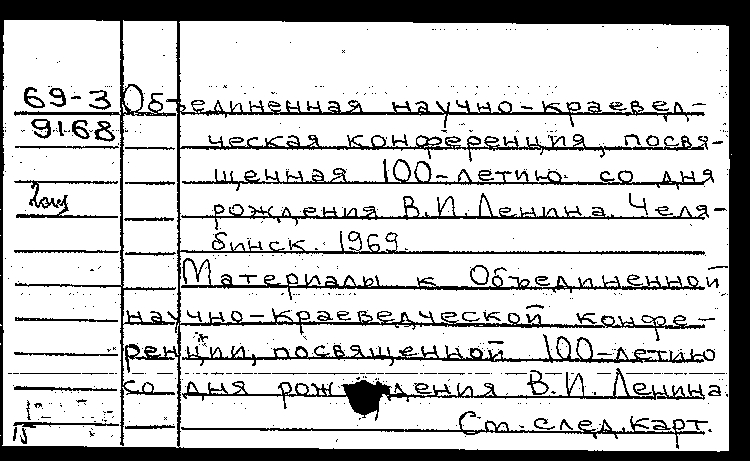 69-3 Объединенная научно-краевед-
9168 ческая конференция, посвя-
щенная 100-летию со дня
рождения В.И.Ленина. Челя-
бинск. 1969.
Материалы к Объединенной
научно-краеведческой конфе-
ренции, посвященной 100-летию
со дня рождения В.И.Ленина.
См. след. карт.
15